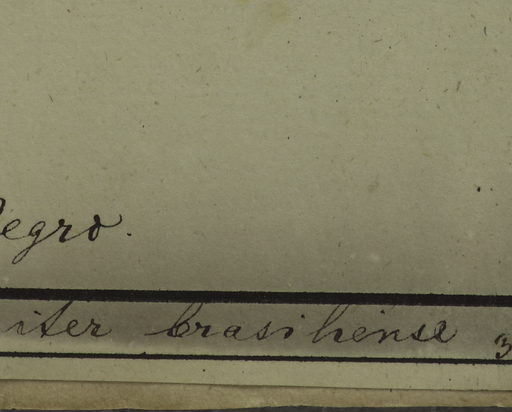 egro.
iter brasiliense 3